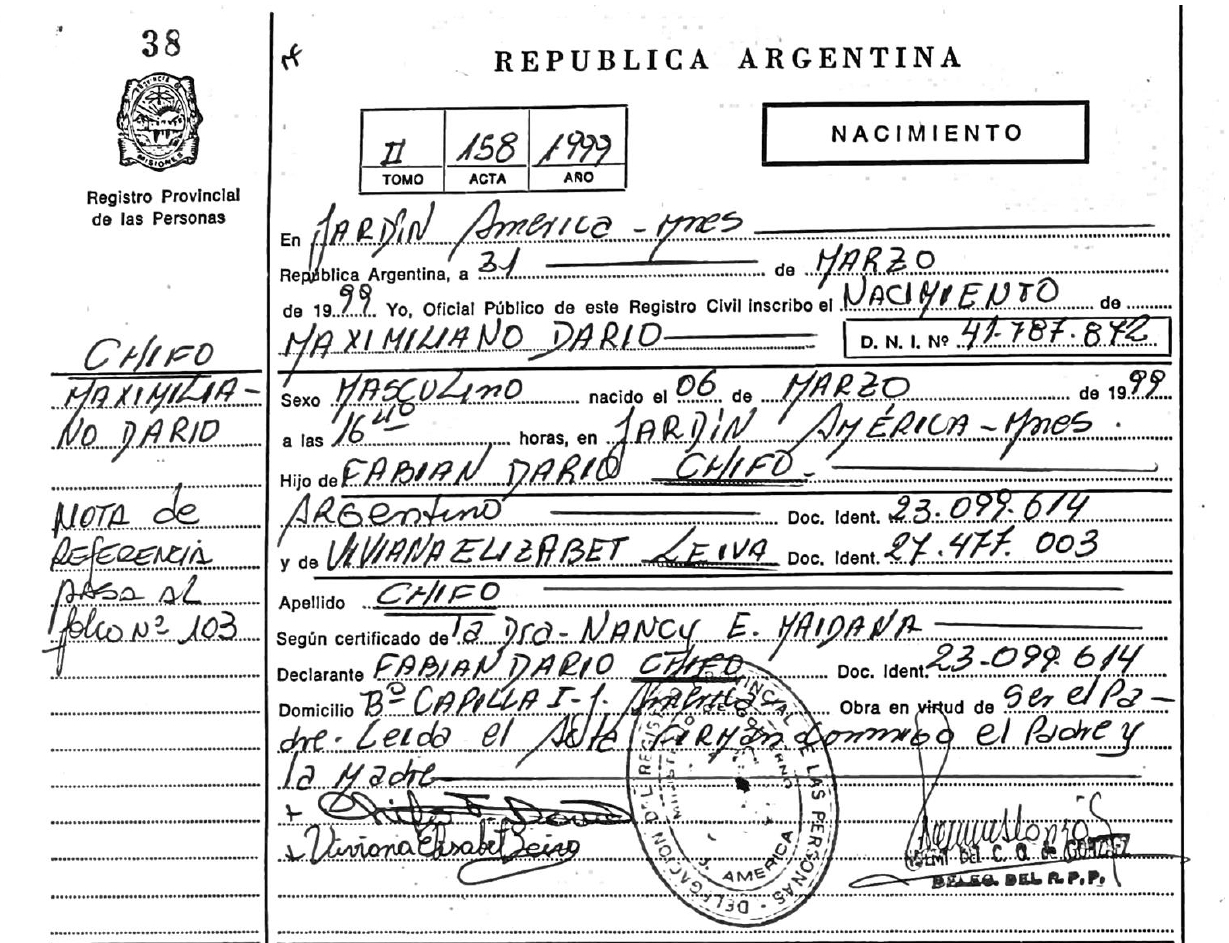 38
PROVINCIA
MISIONES
Registro Provincial
de las Personas
CHIFO
MAXIMILIA-
NO DARIO
NOTA de
REFERENCIA
PASA AL
folio Nº 103
REPUBLICA ARGENTINA
II 158 1999
TOMO ACTA AÑO
NACIMIENTO
En JARDIN America - Mnes
República Argentina, a 31 de MARZO
de 1999 Yo, Oficial Público de este Registro Civil inscribo el NACIMIENTO de
MAXIMILIANO DARIO D. N. I. Nº 41.787.872
Sexo MASCULINO nacido el 06 de MARZO de 1999
a las 16 40 horas, en JARDIN AMÉRICA - Mnes.
Hijo de FABIAN DARIO CHIFO.
ARGentino Doc. Ident. 23.099.614
y de VIVIANA ELIZABET LEIVA Doc. Ident. 27.477.003
Apellido CHIFO
Según certificado de la Dra. NANCY E. MAIDANA
Declarante FABIAN DARIO CHIFO Doc. Ident. 23.099.614
Domicilio Bº CAPILLA I - J. America Obra en virtud de Ser el Pa-
dre. Leida el Acta FIRMAN conmigo el Padre y
la Madre
+ Chifo F. Dario
+ Viviana Elisabet Leiva
DELEGACION DEL REGISTRO PROVINCIAL DE LAS PERSONAS
MINISTERIO DE GOBIERNO
J. AMERICA
DEL C. A. de GONZALEZ
DELEG. DEL R.P.P.